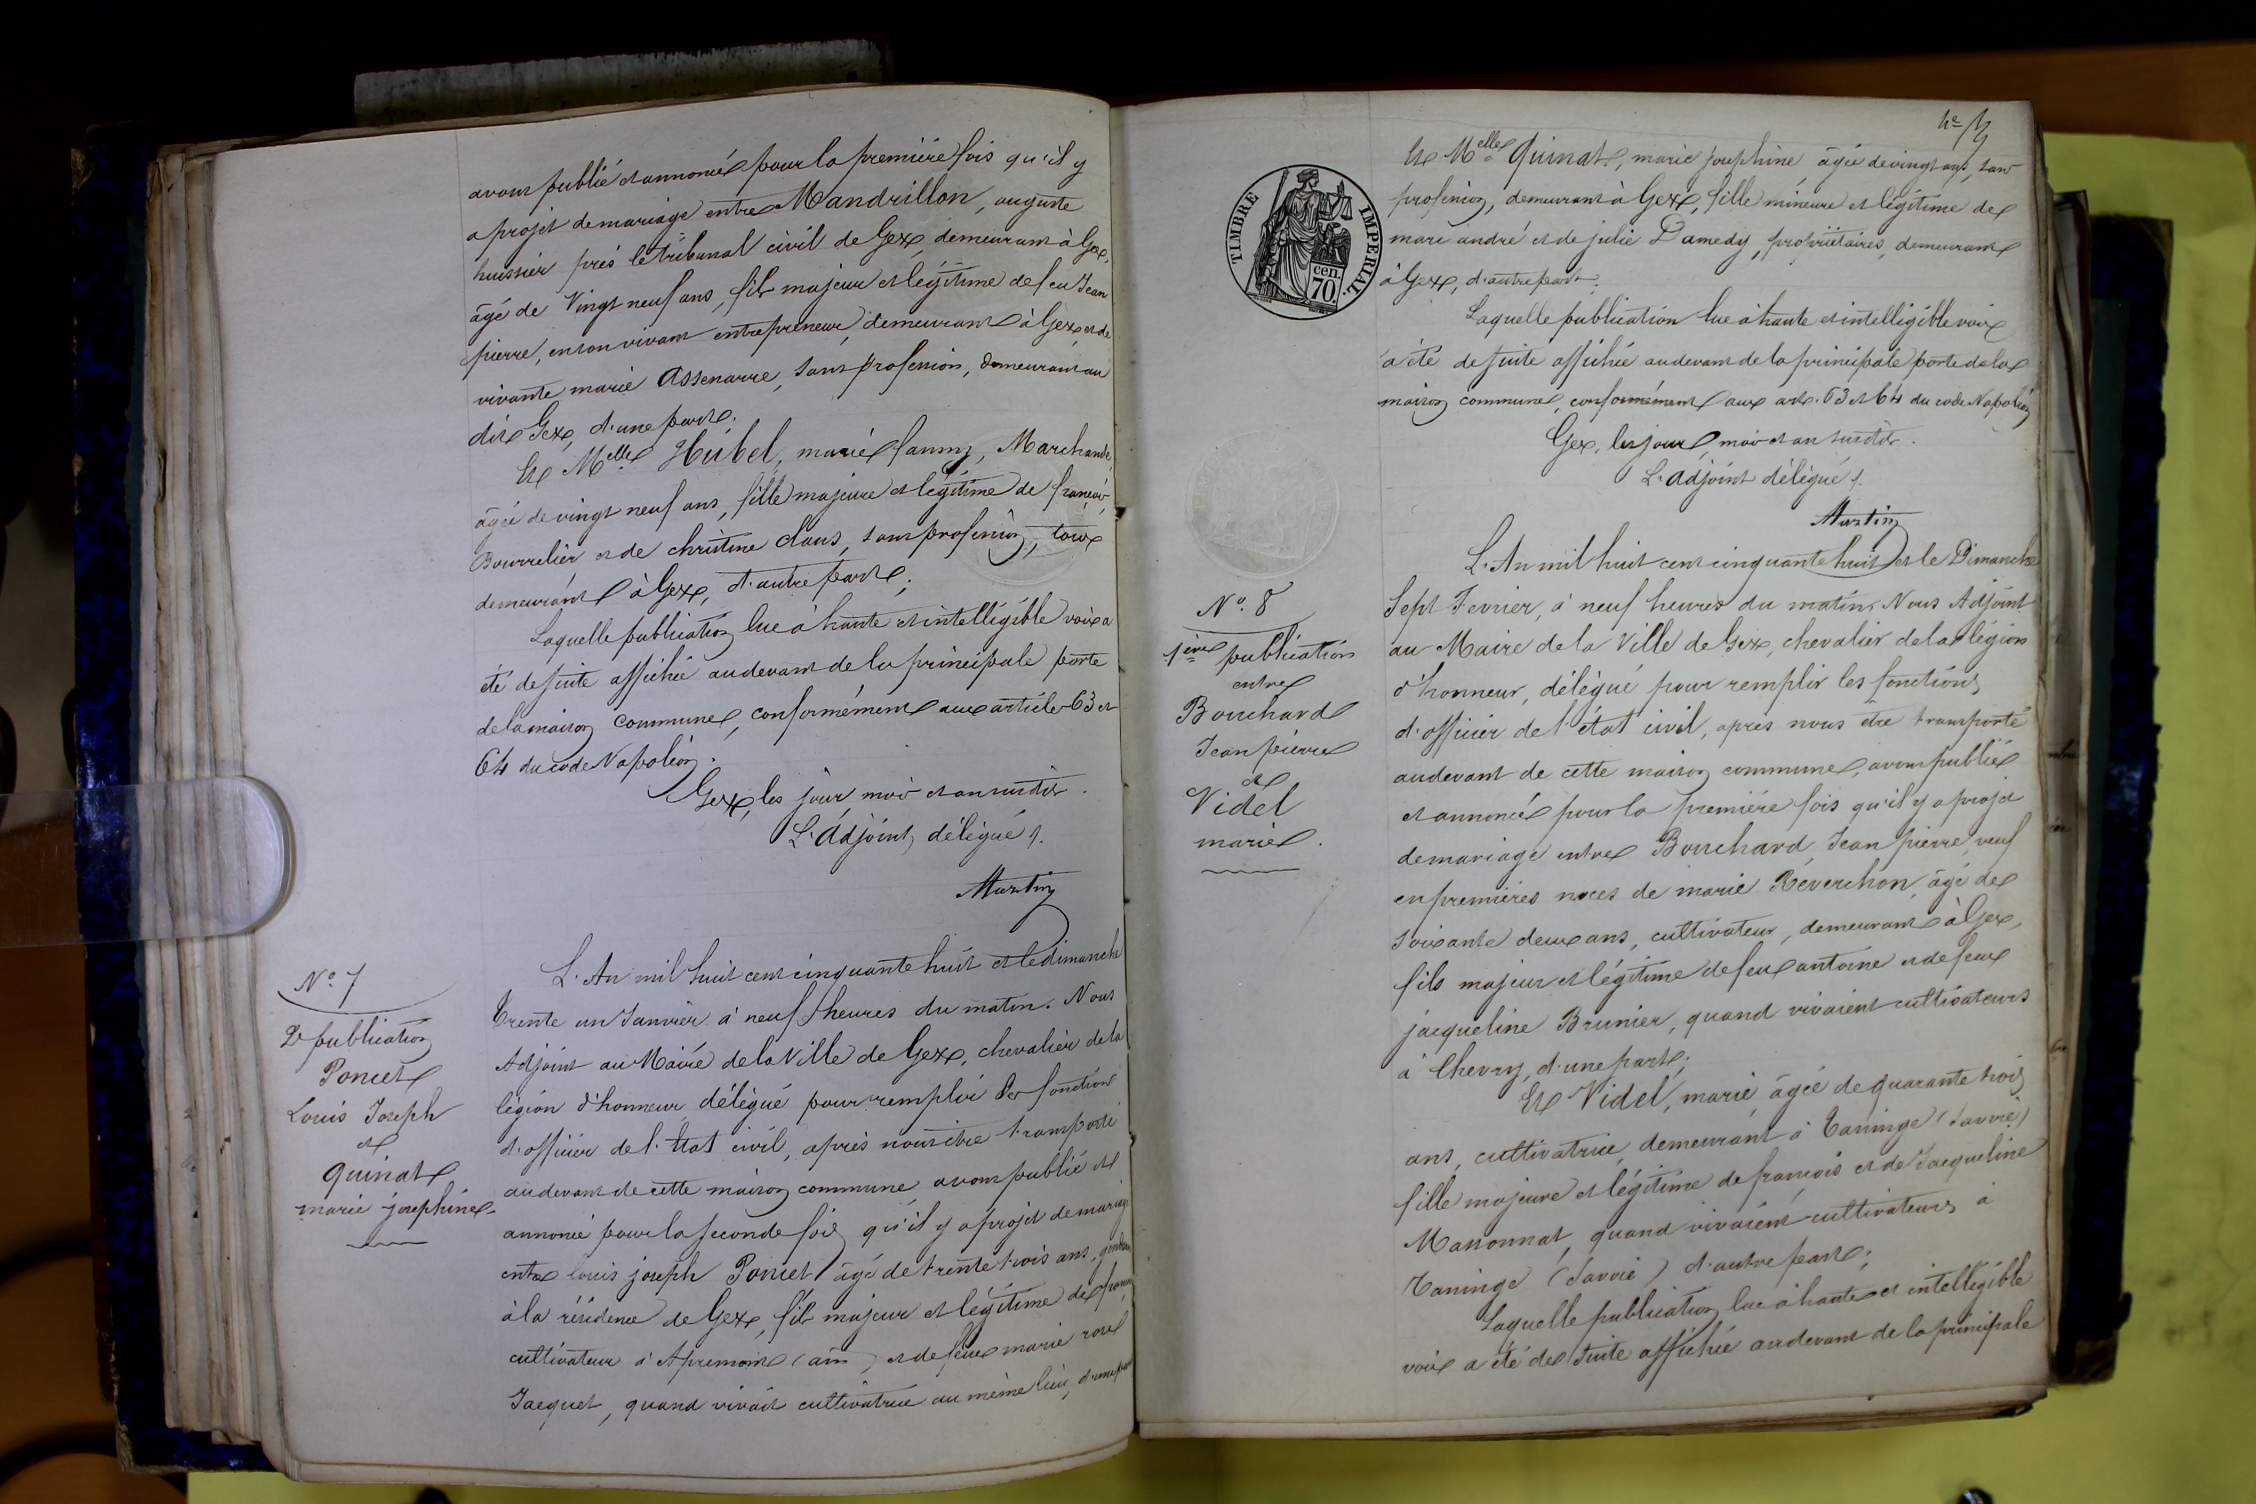 avons publié et annoncé pour la première fois qu'il y
a projet de mariage entre Mandrillon, auguste
huissier près le tribunal civil de Gex, demeurant à Gex,
âgé de Vingt neuf ans, fils majeur et légitime de feu Jean
pierre, en son vivant entrepreneur, demeurant à Gex, et de
vivante marie Assenarre, sans profession, demeurant au
dit Gex, d'une part;
Et Melle Hubel, marie fanny, Marchande,
âgée de vingt neuf ans, fille majeure et légitime de françois,
Bourrelier et de christine claus, sans profession, tous
demeurant à Gex, d'autre part;
Laquelle publication lue à haute et intelligible voix a
été de suite affichée au devant de la principale porte
de la maison commune, conformément aux articles 63 et
64 du code Napoléon.
Gex, les jour mois et an susdits.
L'Adjoint délégué /.
Martin
N° 7
2e publication
Poncet
Louis Joseph
et
quinat
marie joséphine
L'An mil huit cent cinquante huit et le dimanche
Trente un Janvier à neuf heures du matin. Nous
Adjoint au Maire de la Ville de Gex, chevalier de la
légion d'honneur, délégué pour remplir les fonctions
d'officier de l'Etat civil, après nous être transporté
au devant de cette maison commune avons publié et
annoncé pour la seconde fois qu'il y a projet de mariage
entre louis joseph Poncet âgé de trente trois ans, gendarme
à la résidence de Gex, fils majeur et légitime de
cultivateur à Apremont (ain) et de feue marie rose
Jacquet, quand vivait cultivatrice au même lieu, d'une part
4e
TIMBRE IMPERIAL.
cen. 70.
Et Melle Quinat, marie josephine, âgée de vingt ans, sans
profession, demeurant à Gex, fille mineure et légitime de
marc andré et de julie Damedy, propriétaires, demeurant
à Gex, d'autre part.
Laquelle publication lue à haute et intelligible voix
a été de suite affichée au devant de la principale porte de la
maison commune, conformément aux arts. 63 et 64 du code Napoléon
Gex, les jour, mois et an susdits.
L'adjoint délégué /.
Martin
N° 8
1ère publication
entre
Bouchard
Jean pierre
et
Videl
marie.
L'An mil huit cent cinquante huit et le Dimanche
Sept Fevrier, à neuf heures du matin, Nous Adjoint
au Maire de la Ville de Gex, chevalier de la légion
d'honneur, délégué pour remplir les fonctions
d'officier de l'état civil, après nous etre transporté
au devant de cette maison commune, avons publié
et annoncé pour la première fois qu'il y a projet
de mariage entre Bouchard, Jean pierre, veuf
en premières noces de marie Reverchon, âgé de
soixante deux ans, cultivateur, demeurant à Gex,
fils majeur et légitime de feu antoine et de feue
jacqueline Brunier, quand vivaient cultivateurs
à Chevry, d'une part;
Et Videl, marie, âgée de quarante trois
ans, cultivatrice, demeurant à Taninge (Savoie)
fille majeure et légitime de françois et de Jacqueline
Manonnat, quand vivaient cultivateurs à
Taninge (Savoie) d'autre part;
Laquelle publication lue à haute et intelligible
voix a été de suite affichée au devant de la principale